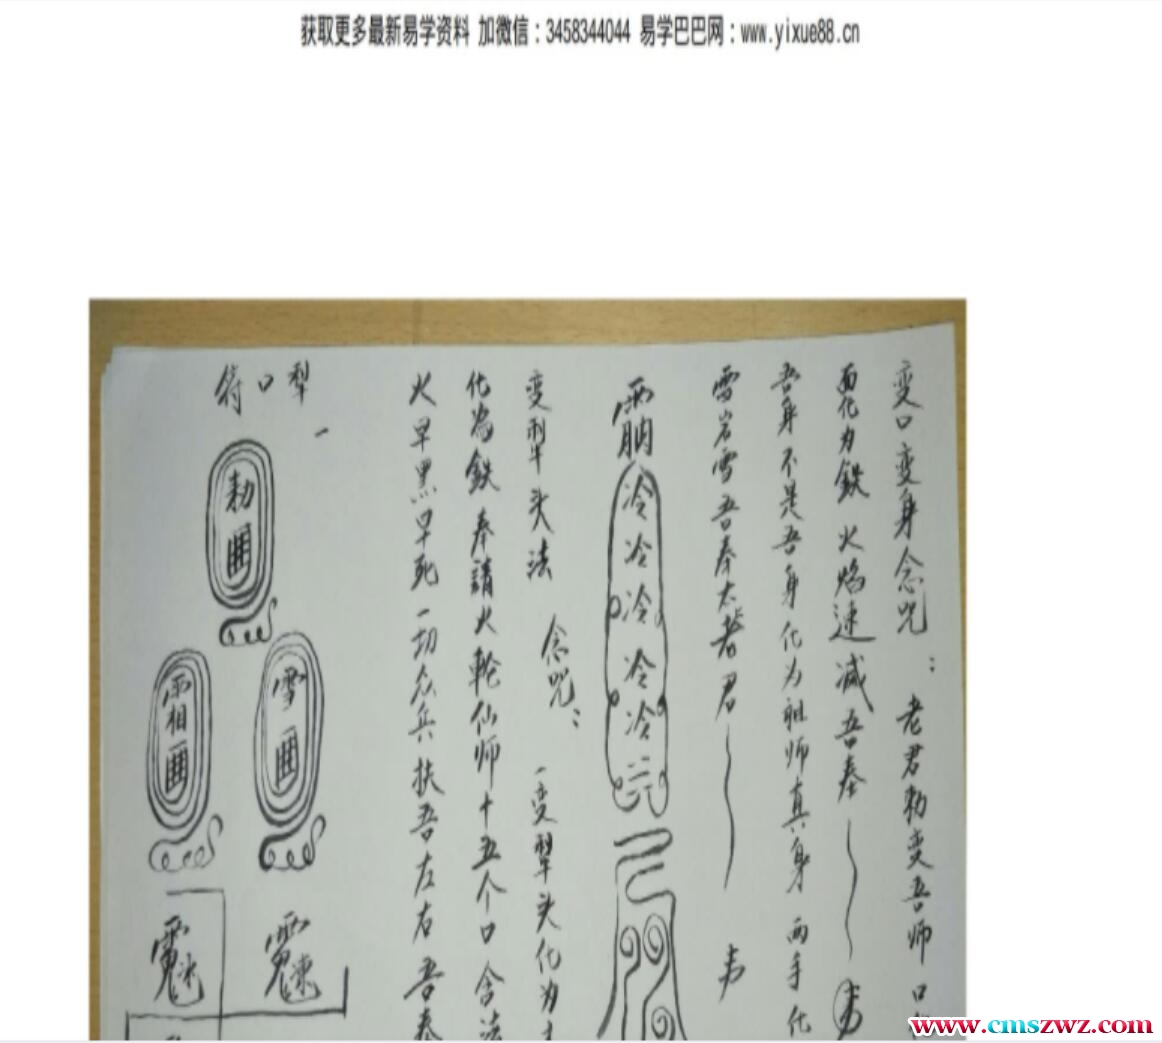 获取更多最新易学资料 加微信：3458344044 易学巴巴网：www.yixue88.cn
变口变身念咒：老君勅变吾师口
面化为鉄火焰速减吾奉
吾身不是吾身化为祖师真身两手化
雪岩雪吾奉太老君
冷冷冷冷冷
变犁头法 念咒：一变犁头化为
化為鉄奉請火轮仙师十五个口含法
火早黑早死一切众兵扶吾左右吾奉
犁口符
一
勅
雪
www.cmszwz.com